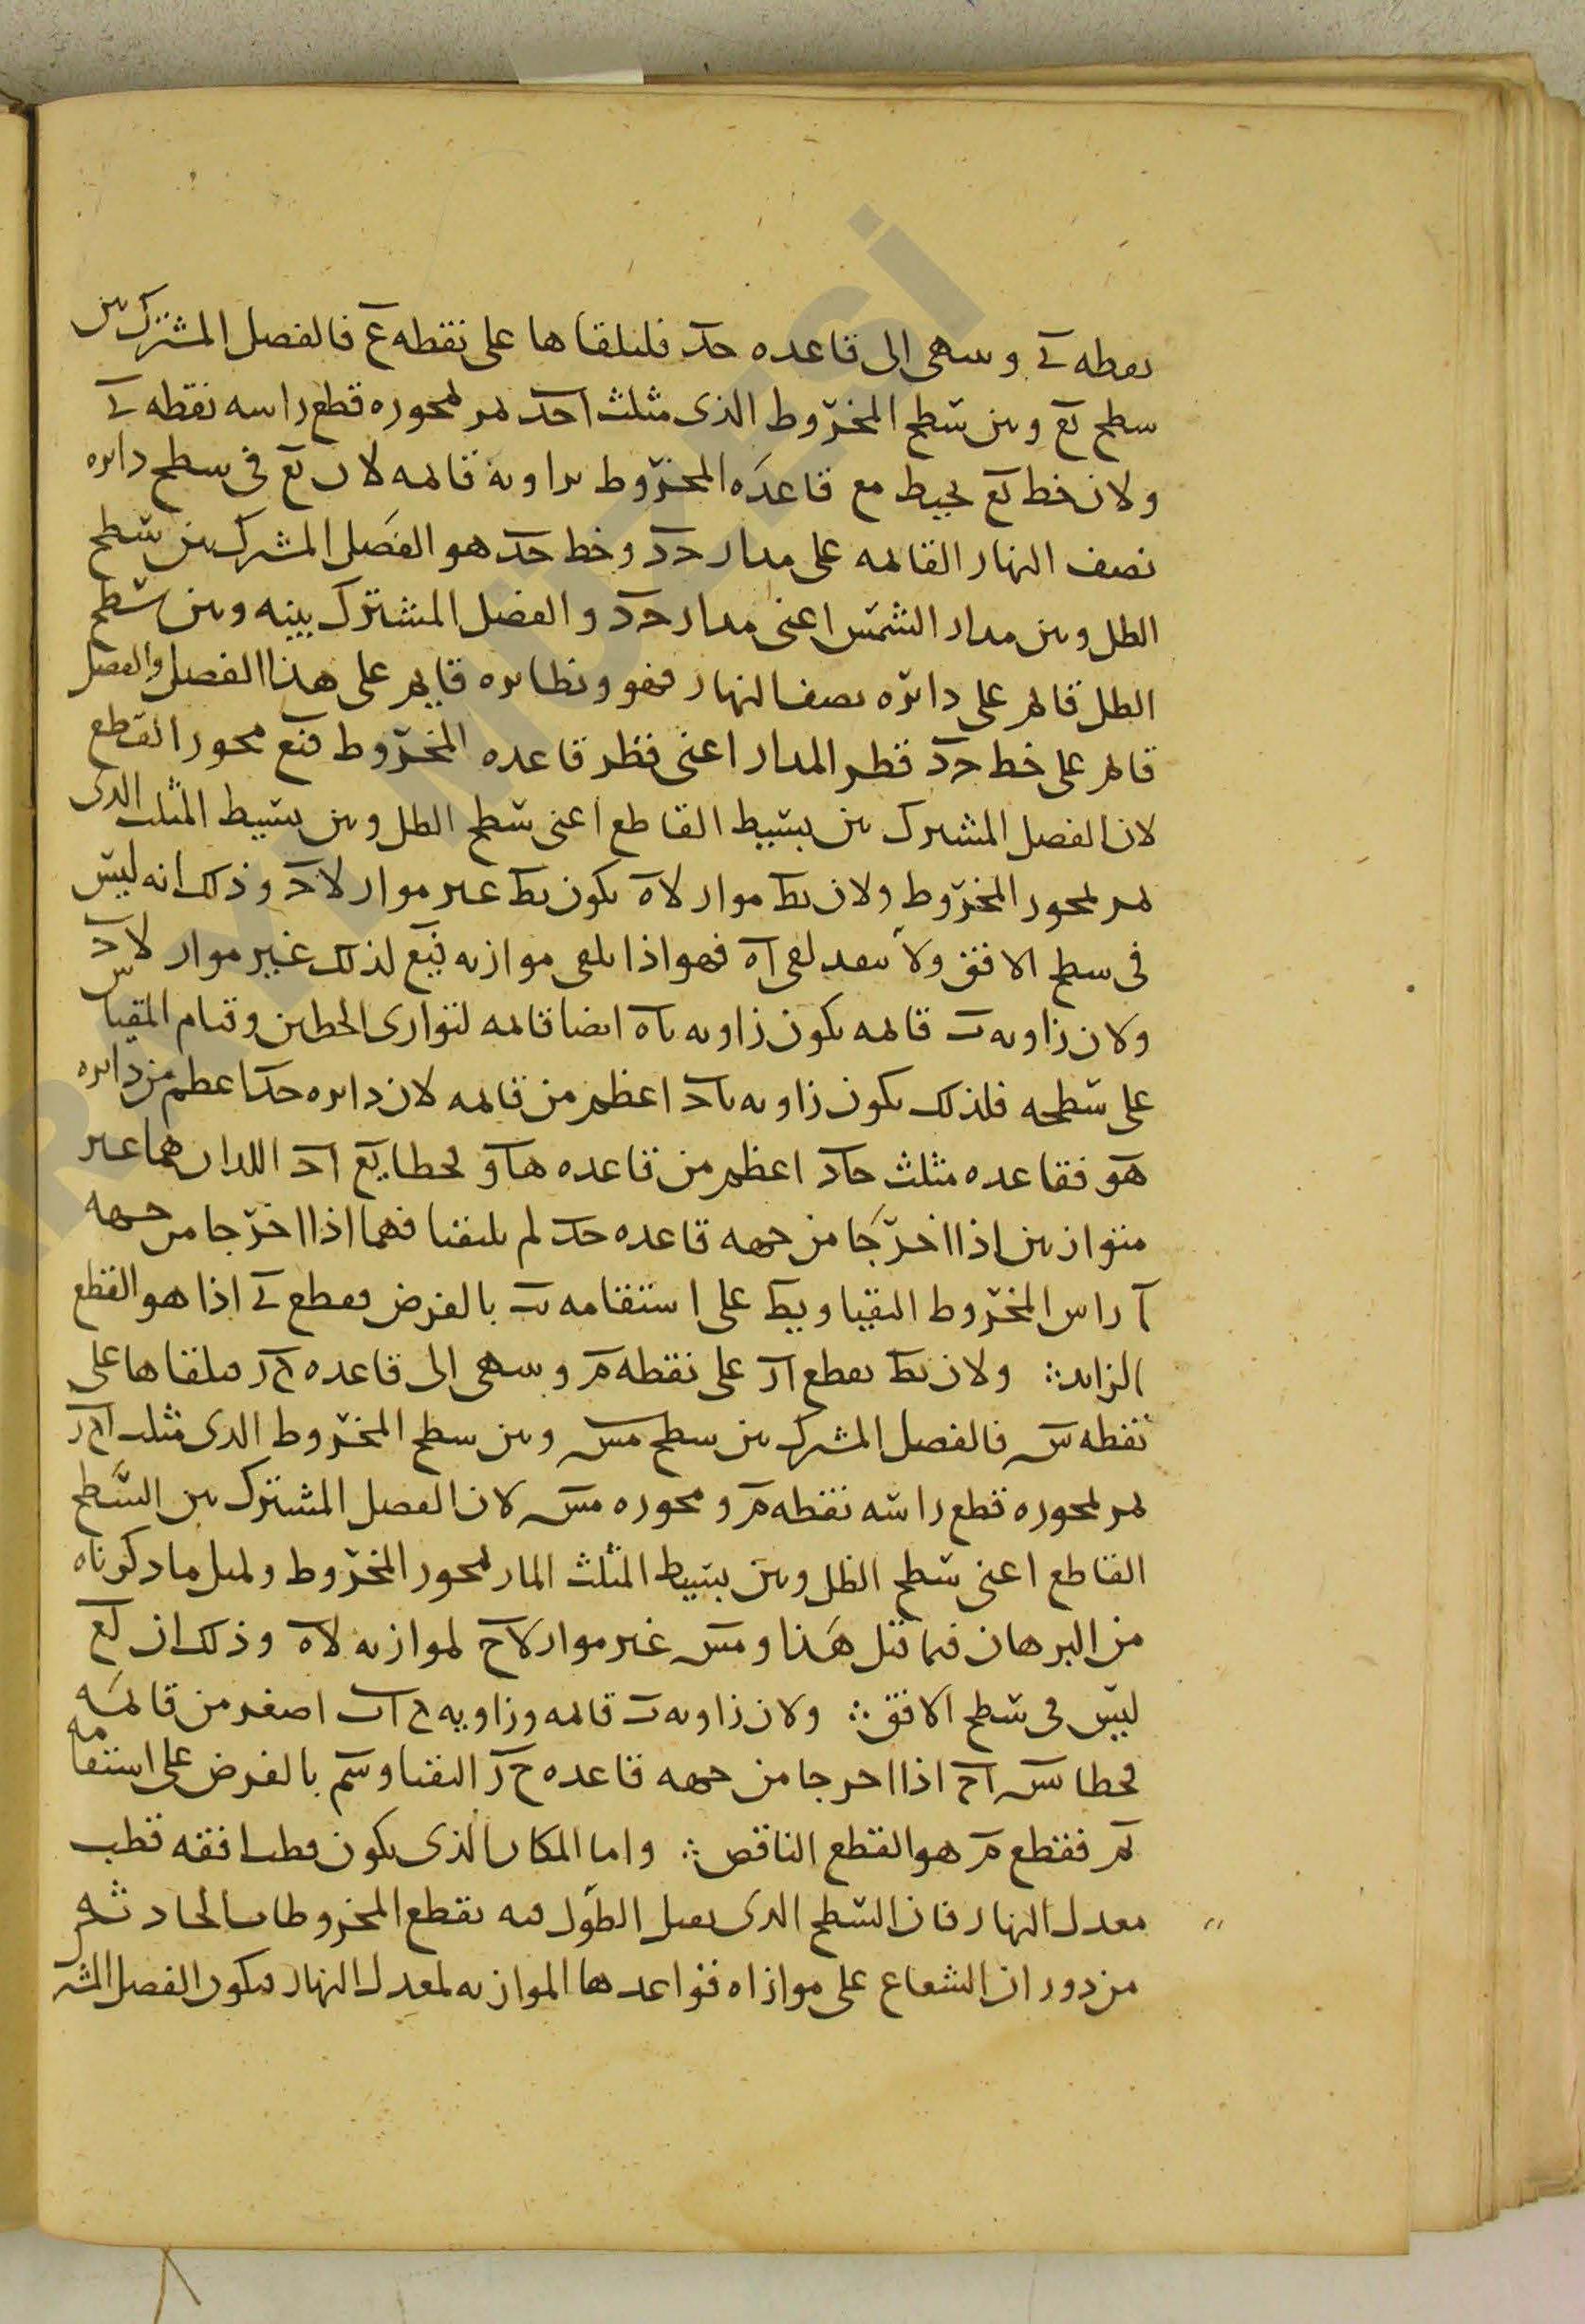 نقطه ى وينتهى الى قاعده حد فليلقاها على نقطه ع فالفصل المشترك بين
سطح ىع وبين سطح المخروط الذى مثلث احد يمر بمحوره قطع راسه نقطه ى
ولان خط ىع يحيط مع قاعده المخروط بزاوية قائمه لان ىع فى سطح دائره
نصف النهار القائمه على مدار حد وخط حد هو الفصل المشترك بين سطح
الظل وبين مدار الشمس اعنى مدار حد والفصل المشترك بينه وبين سطح
الظل قائم على دائره نصف النهار فهو ونظائره قايم على هذا الفصل والفصل
قائم على خط حد قطر المدار اعنى قطر قاعده المخروط فىع محور القطع
لان الفصل المشترك بين بسيط القاطع اعنى سطح الظل وبين بسيط المثلث الذى
يمر بمحور المخروط ولان ىط مواز لاه يكون ىط غير مواز لاد وذلك انه ليس
فى سطح الافق ولا بعد لقى اه فهو اذا يلقى موازيه فىع لذلك غير مواز لاد
ولان زاويه ب قائمه يكون زاويه ىاه ايضا قائمه لتوازى الخطين وقيام المقياس
على سطحه فلذلك يكون زاويه ىاد اعظم من قائمه لان دائره حد اعظم من دائره
هو فقاعده مثلث حاد اعظم من قاعده هاو فخطا ىع اد اللذان هما غير
متوازيين اذا اخرجا من جهه قاعده حد لم يلتقيا فهما اذا اخرجا من جهه
ا راس المخروط التقيا وىط على استقامه ىب بالفرض فقطع ى اذا هو القطع
الزايد ∴ ولان ىط يقطع از على نقطه م وينتهى الى قاعده حز فيلقاها على
نقطه س فالفصل المشترك بين سطح مس وبين سطح المخروط الذى مثلث احز
يمر بمحوره قطع راسه نقطه م ومحوره مس لان الفصل المشترك بين السطح
القاطع اعنى سطح الظل وبين بسيط المثلث المار بمحور المخروط ولمثل ما ذكرناه
من البرهان فيما قبل هذا ومس غير مواز لاح لموازيه لاه وذلك ان ىع
ليس فى سطح الافق ∴ ولان زاويه ب قائمه وزاويه حاب اصغر من قائمه
فخطا ىس اح اذا اخرجا من جهه قاعده حز التقيا وسم بالفرض على استقامه
ىم فقطع م هو القطع الناقص ∴ واما المكان الذى يكون قطب افقه قطب
معدل النهار فان السطح الذى يقبل الظل فيه يقطع المخروطات الحادثه
من دوران الشعاع على موازاه قواعدها الموازيه لمعدل النهار فيكون الفصل المشترك